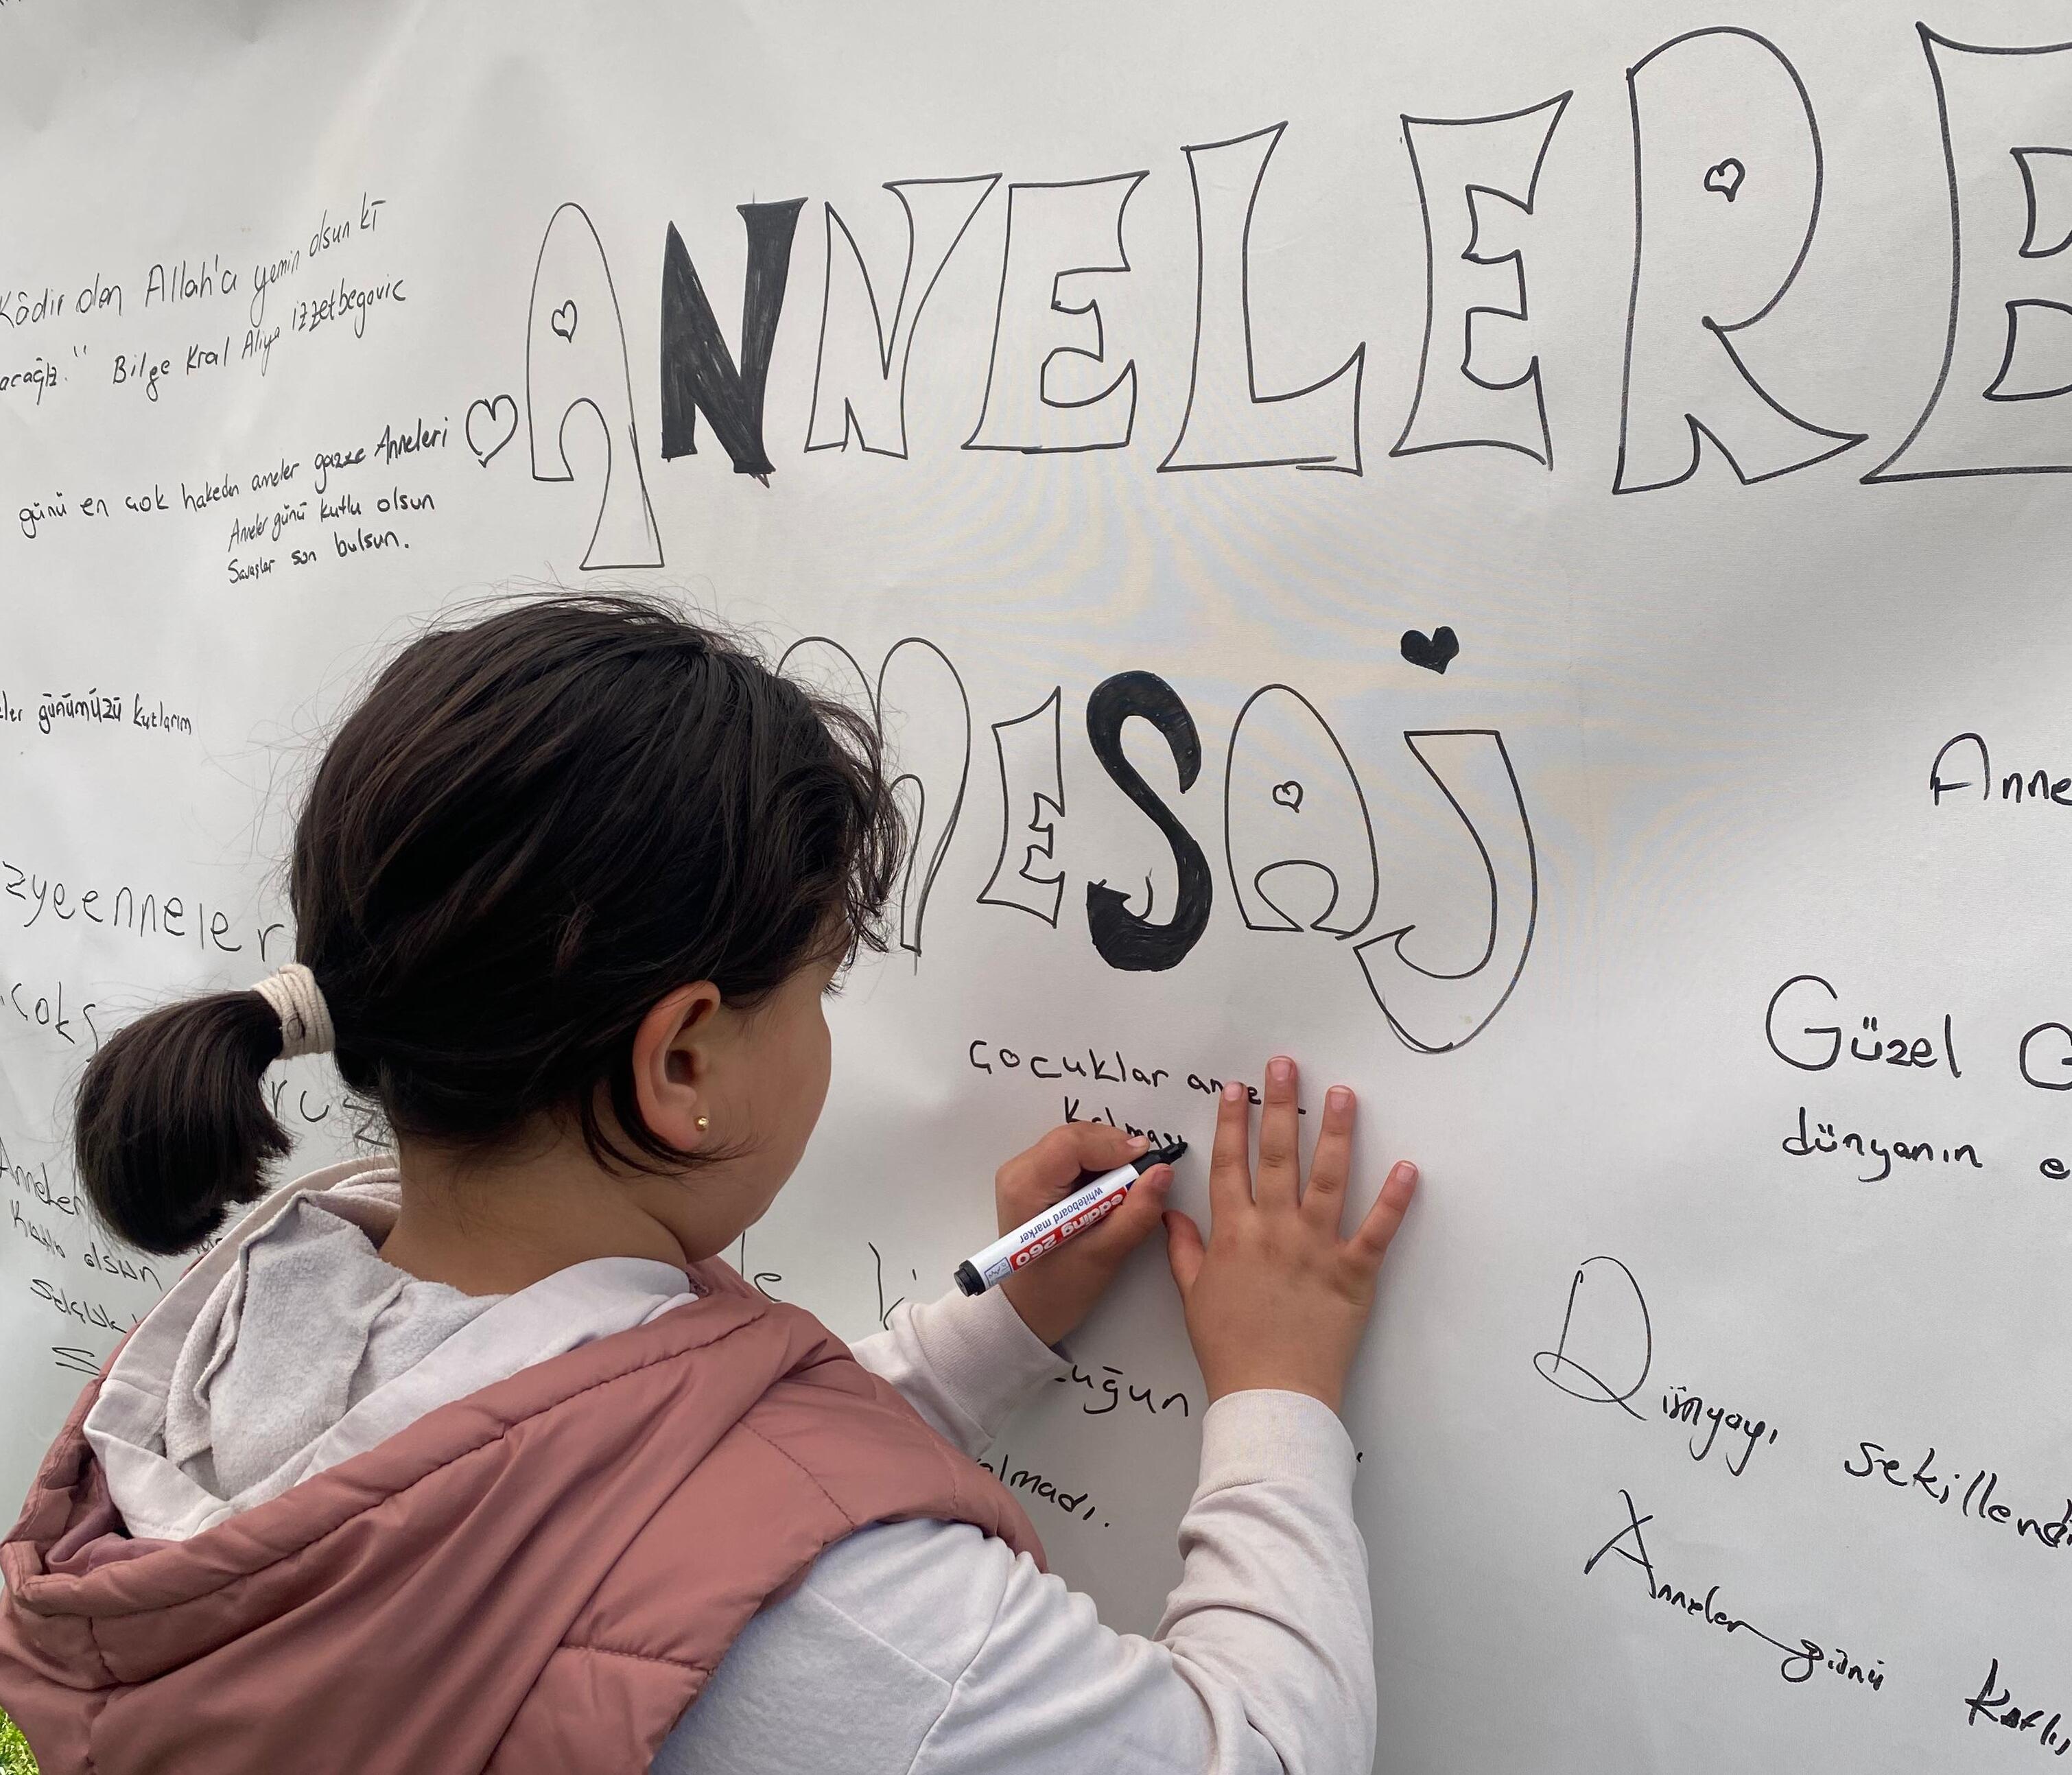 Kâdir olan Allah'a yemin olsun ki
acağız." Bilge Kral Aliya izzetbegovic
günü en çok hakeden anneler gazze Anneleri
Anneler günü kutlu olsun
Savaşlar son bulsun.
♡ ANNELERE
MESAJ
ler günümüzü kutlarım
zyeenneler
çok
Anneler
Kutlu olsun
Selçuk
Anne
Güzel G
dünyanın e
Çocuklar
Kalması
edding 260
whiteboard marker
le
uğun
almadı.
Dünyayı sekillend
Anneler günü Kutlu